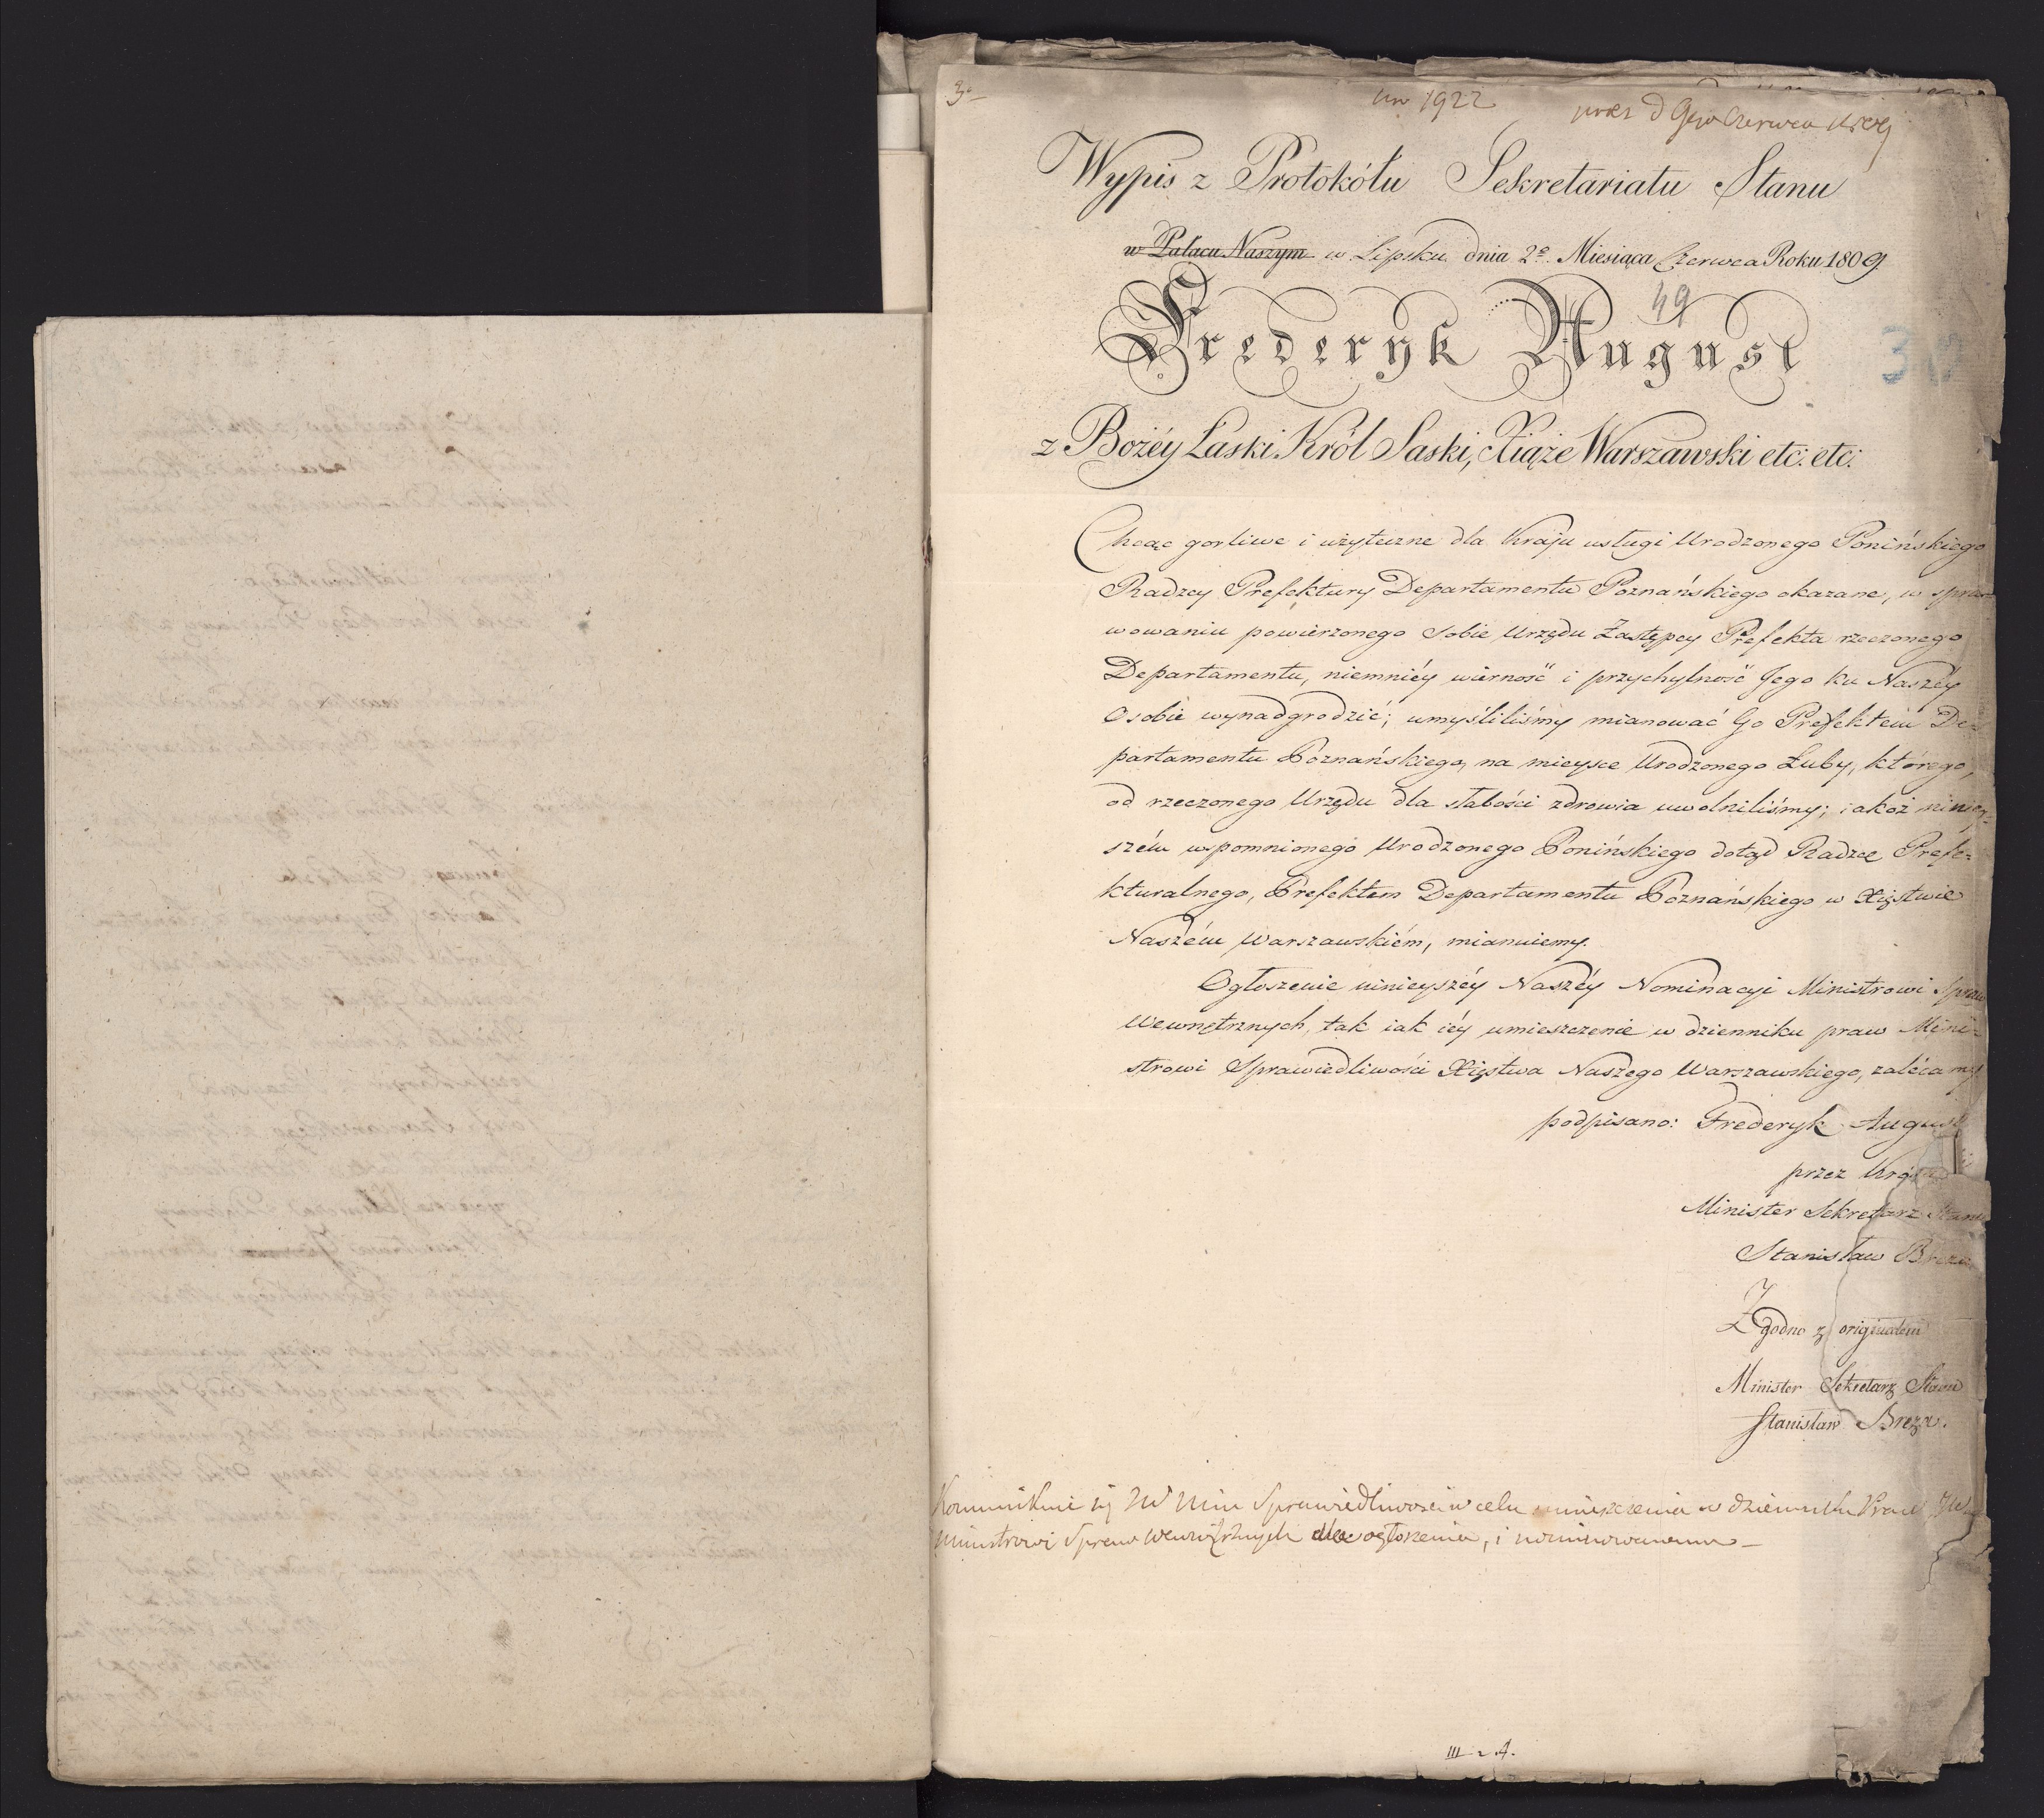 3
nro 1922
praes d 9go Czerwca
Wypis z Protokółu Sekretariatu Stanu
w Pałacu Naszym w Lipsku dnia 2o Miesiąca Czerwca Roku 1809
49
Frederyk August
3
z Bożéy Łaski Król Saski, Xiąże Warszawski etc: etc:
Chcąc gorliwe i użyteczne dla Kraju usługi Urodzonego Ponińskiego
Radzcy Prefektury Departamentu Poznańskiego okazane, w spra
wowaniu powierzonego sobie Urzędu Zastępcy Prefekta rzeczonego
Departamentu, niemniéy wierność i przychylność Jego ku Naszéy
Osobie wynadgrodzić; umyśliliśmy mianować Go Prefektem De=
partamentu Poznańskiego, na mieysce Urodzonego Łuby, którego,
od rzeczonego Urzędu dla słabości zdrowia uwolniliśmy; iakoż niniey=
szém wspomnionego Urodzonego Ponińskiego dotąd Radzcę Prefe=
kturalnego, Prefektem Departamentu Poznańskiego w Xięstwie
Naszém Warszawskiém, mianuiemy.
Ogłoszenie ninieyszéy Naszéy Nominacyi Ministrowi Spraw
Wewnętrznych, tak iak iéy umieszczenie w dzienniku praw Mini=
strowi Sprawiedliwości Xięstwa Naszego Warszawskiego, zalécamy
podpisano: Frederyk August
przez Króla
Minister Sekretarz Stanu
Stanisław Breza
Zgodno z originałem
Minister Sekretarz Stanu
Stanisław Breza.
Kommunikuie się JW Min Sprawiedliwości w celu umieszczenia w dzienniku Praw JW
Ministrowi Spraw Wewnętrznych dla ogłoszenia, i nominowanemu _
III 2 A.